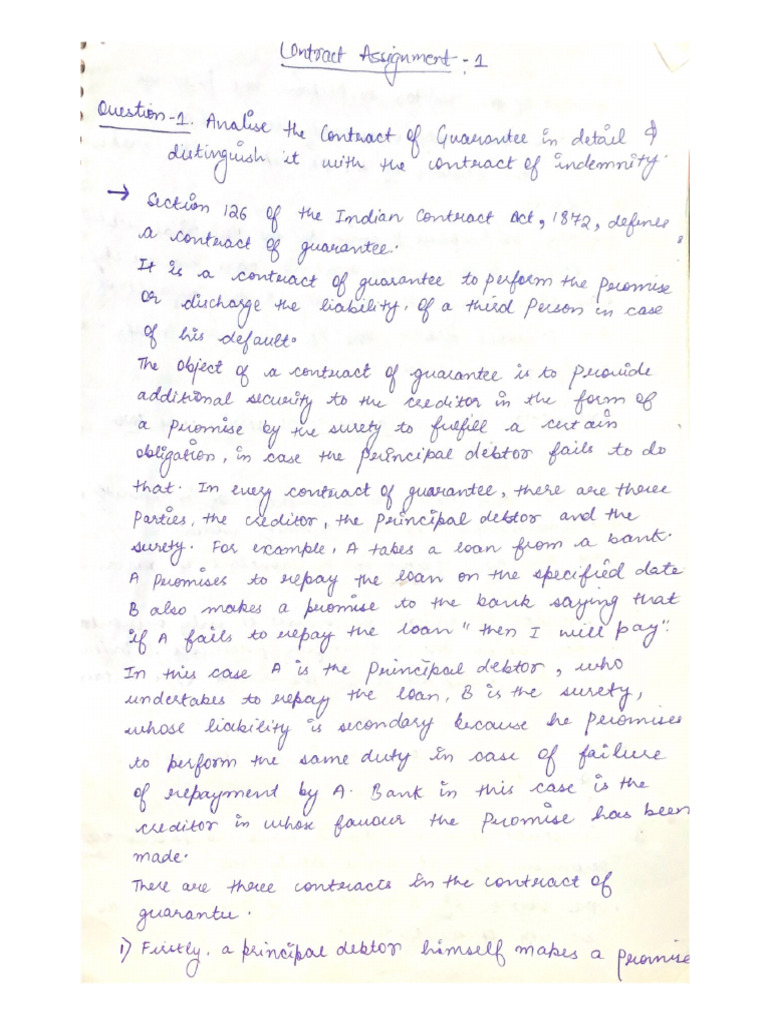 Contract Assignment - 1
Question-1. Analise the Contract of Guarantee in detail &
distinguish it with the contract of indemnity.
→ Section 126 of the Indian Contract Act, 1872, defines
a contract of guarantee.
It is a contract of guarantee to perform the promise
or discharge the liability, of a third person in case
of his default.
The object of a contract of guarantee is to provide
additional security to the creditor in the form of
a promise by the surety to fulfill a certain
obligation, in case the principal debtor fails to do
that. In every contract of guarantee, there are three
parties, the creditor, the principal debtor and the
surety. For example, A takes a loan from a bank.
A promises to repay the loan on the specified date
B also makes a promise to the bank saying that
if A fails to repay the loan "then I will pay".
In this case A is the principal debtor, who
undertakes to repay the loan, B is the surety,
whose liability is secondary because he promises
to perform the same duty in case of failure
of repayment by A. Bank in this case is the
creditor in whose favour the promise has been
made.
There are three contracts in the contract of
guarantee.
1) Firstly, a principal debtor himself makes a promise